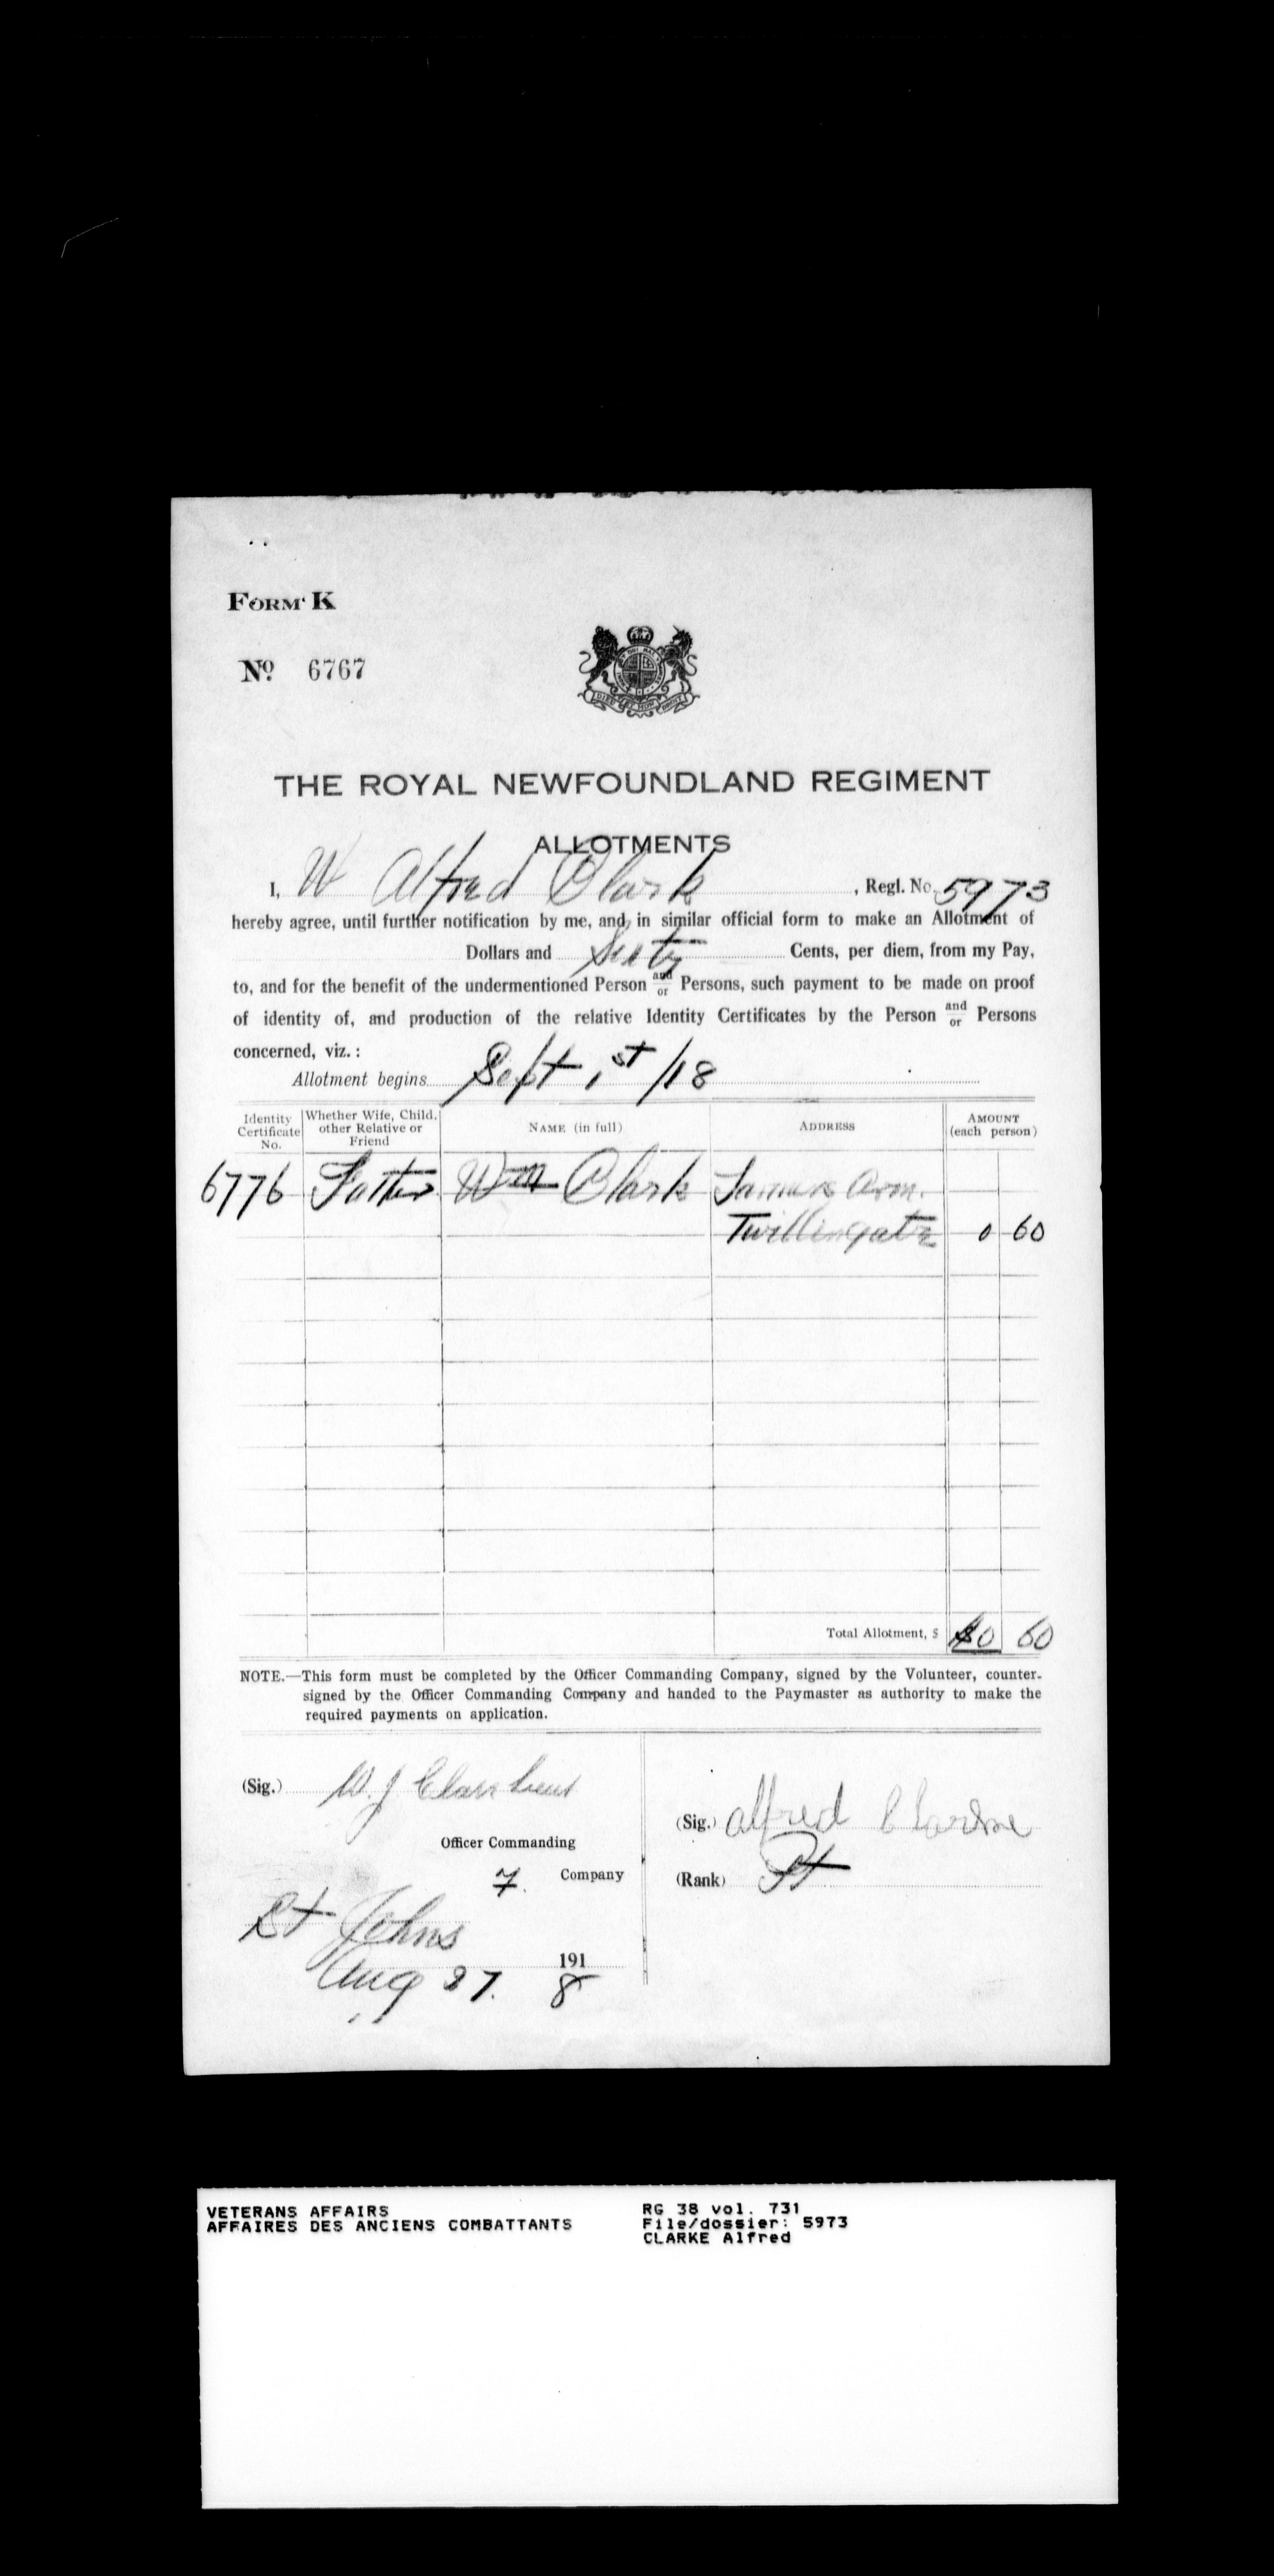 FORM K
No. 6767
THE ROYAL NEWFOUNDLAND REGIMENT
ALLOTMENTS
I, W Alfred Clark, Regl. No. 5973
hereby agree, until further notification by me, and, in similar official form to make an Allotment of
Dollars and Sixty Cents, per diem, from my Pay,
to, and for the benefit of the undermentioned Person and/or Persons, such payment to be made on proof
of identity of, and production of the relative Identity Certificates by the Person and/or Persons
concerned, viz. :
Allotment begins Sept 1st /18
Identity Certificate No.
Whether Wife, Child, other Relative or Friend
NAME (in full)
ADDRESS
AMOUNT (each person)
6776 Father Wm Clark Arm.
Twillingate 0 60
Total Allotment, $ 0 60
NOTE.—This form must be completed by the Officer Commanding Company, signed by the Volunteer, counter-
signed by the Officer Commanding Company and handed to the Paymaster as authority to make the
required payments on application.
(Sig.) W. J
Officer Commanding
7. Company
St Johns
Aug 27. 1918
(Sig.) Alfred Clarke
(Rank) Pt
VETERANS AFFAIRS
AFFAIRES DES ANCIENS COMBATTANTS
RG 38 vol. 731
File/dossier: 5973
CLARKE Alfred